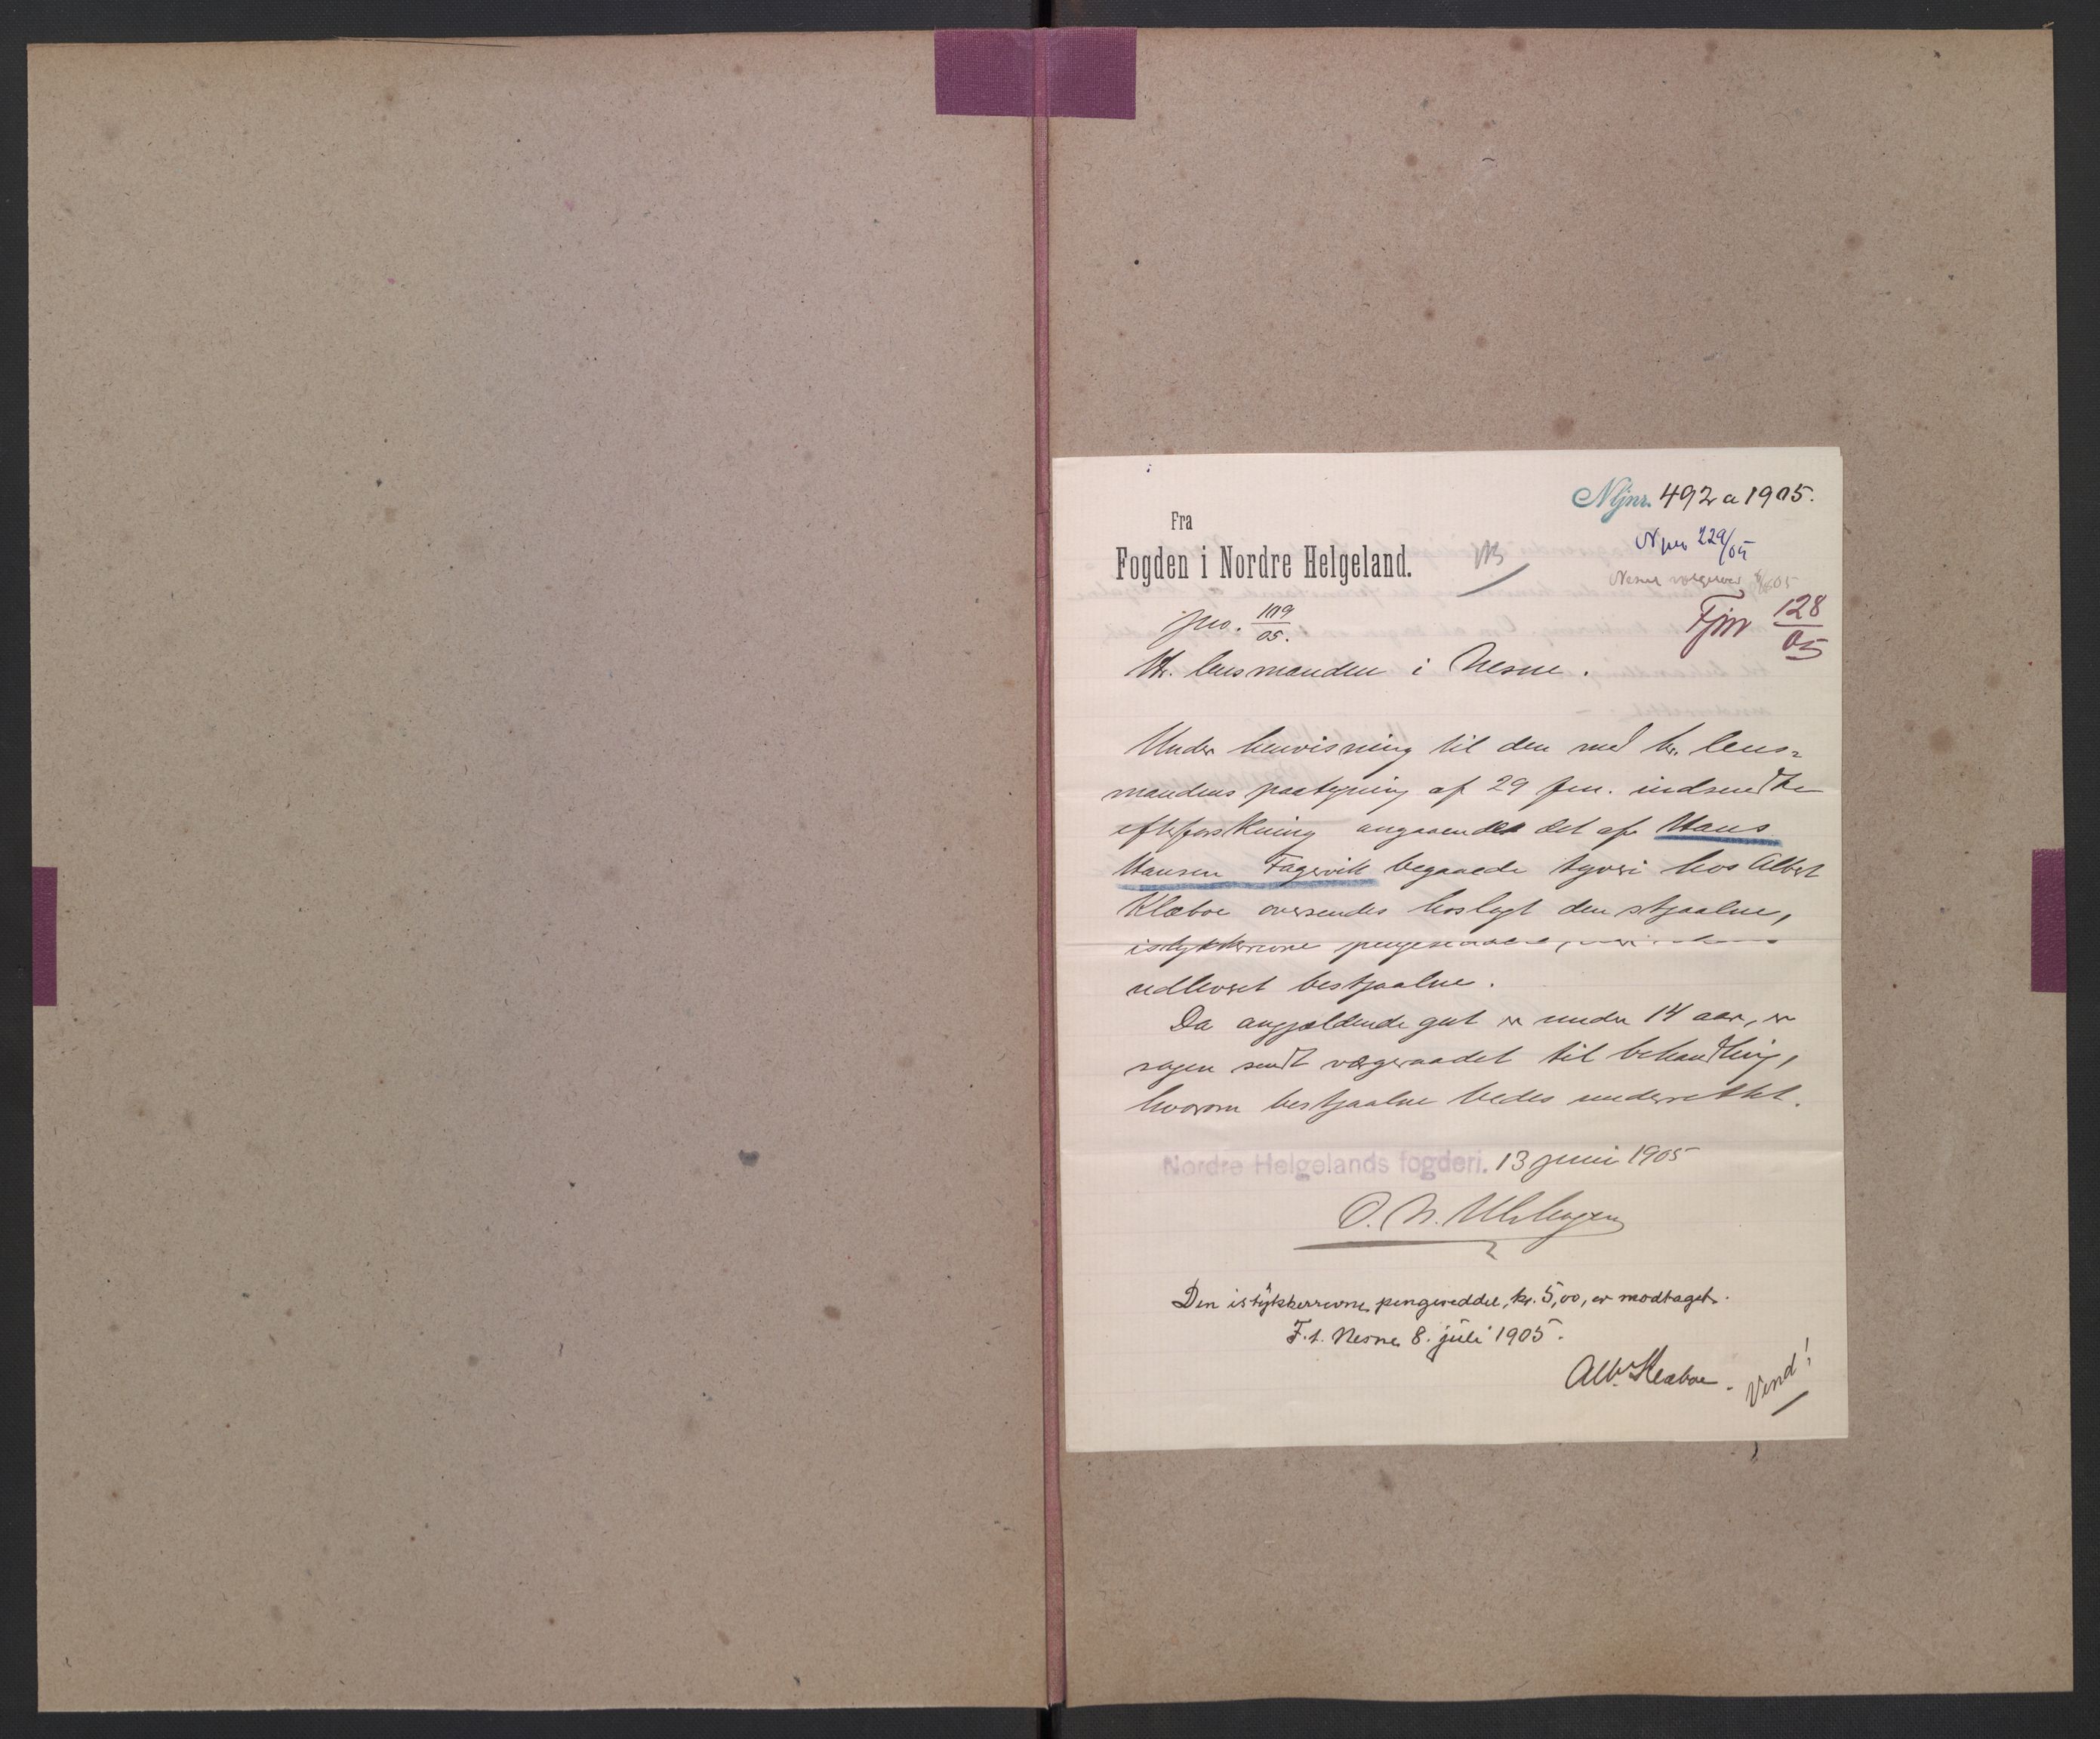 Nljnr. 492 a 1905.
Fra
N jnr 229/05
Fogden i Nordre Helgeland.
Nesne vergeraad 05
Fjnr 128/05
jno. 1119/05.
Hr. lensmanden i Nesne.
Under henvisning til den med hr. lens=
mandens paategning af 29 f.m. indsendte
efterforskning angaaende det af Hans
Hansen Fagervik begaaede tyveri hos Albert
Klæboe oversendes hoslagt den stjaalne,
istykkerrevne pengeseddel,
udleveret bestjaalne.
Da angjældende gut er under 14 aar, er
sagen sendt vergeraadet til behandling,
hvorom bestjaalne bedes underrettet.
Nordre Helgelands fogderi. 13 juni 1905
Den istykkerrevne pengeseddel, kr. 5,00, er modtaget.
F.t. Nesne 8. juli 1905.
Alb. Klæboe.
Vend!